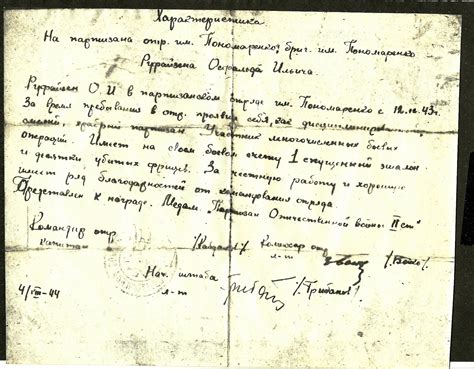 Характеристика
На партизана отр. им. Пономаренко, бриг. им. Пономаренко
Руфайзена Освальда Ильича.
Руфайзен О.И в партизанском отряде им. Пономаренко с 12.12.43г.
За время пребывания в отр. проявил себя, как дисциплинированный,
смелый, храбрый партизан. Участник многочисленных боевых
операций. Имеет на своем боевом счету 1 спущенный эшалон
и десятки убитых фрицев. За честную работу и хорошую
имеет ряд благодарностей от командования отряда.
Представлен к награде. Медаль "Партизан Отечественной войны" II ст"
Командир отр.
капитан
Комиссар отр.
л-т
Нач. штаба
л-т
/Грибанов/
4/VIII-44